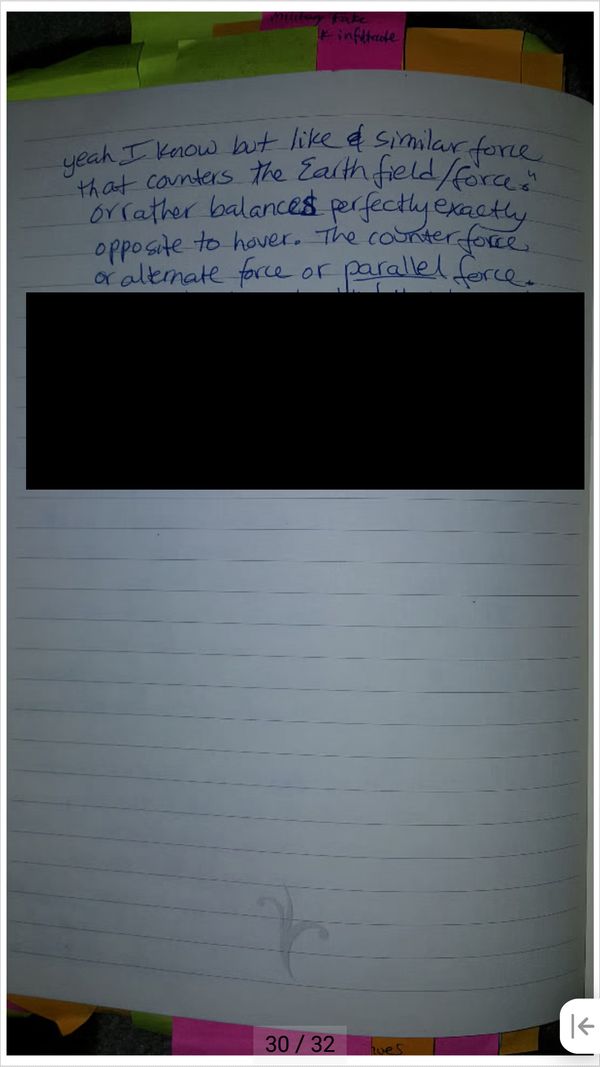 military take
k infiltrate
yeah I know but like a similar force
that counters the Earth field/force."
or rather balances perfectly exactly
opposite to hover. The counter force
or alternate force or parallel force.
30 / 32
ves